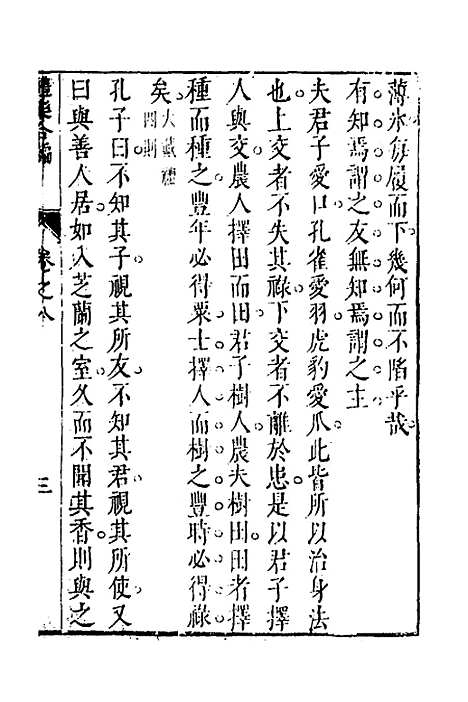 薄氷每履而下幾何而不陷乎哉
有知焉謂之友無知焉謂之主
夫君子愛口孔雀愛羽虎豹愛爪此皆所以治身法
也上交者不失其祿下交者不離於患是以君子擇
人與交農人擇田而田君子樹人農夫樹田田者擇
種而種之豐年必得粟士擇人而樹之豐時必得祿
矣大戴禮四則
孔子曰不知其子視其所友不知其君視其所使又
曰與善人居如入芝蘭之室久而不聞其香則與之
卷之八
三